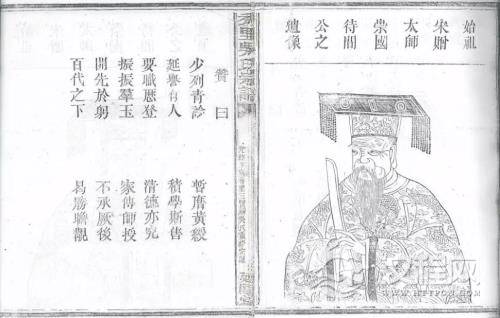 始祖
宋贈
太師
崇國
待問
公之
遺像
贊曰
少列青 膺黃
延譽有人 積學斯售
要職歷登 清德亦究
振振羣玉 家傳師授
開先於躬 不承厥後
百代之下 曷勝瞻
汉程网
HTTPCN.COM